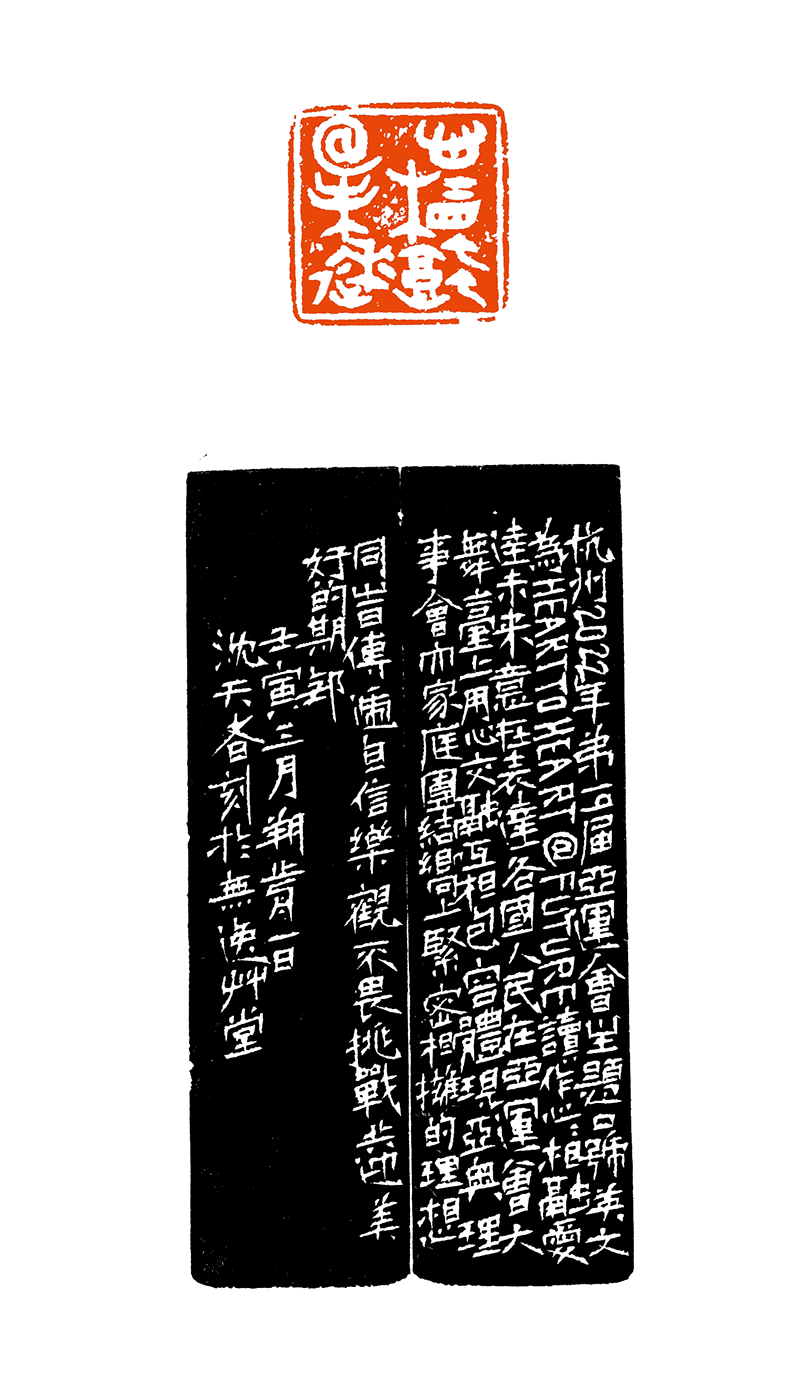 心相融
@未來
杭州2022年弟19届亞運會主題口號英文
為HEART TO HEART @FUTURE讀作心:相融愛
達未來意在表達各國人民在亞運會大
舞臺上用心交融互相包容體現亞奧理
事會大家庭團結嚮上緊密相擁的理想
同旹傳遞自信樂觀不畏挑戰共迎美
好的期
壬寅三月朔歬一日
沈天刻於無漁艸堂